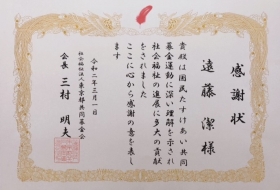 感謝状
遠藤 潔 様
貴殿は国民たすけあい共同
募金運動に深い理解を示され
社会福祉の進展に多大の貢献
をされました
ここに心から感謝の意を表し
ます
令和二年三月一日
社会福祉法人東京都共同募金会
会長 三村 明夫